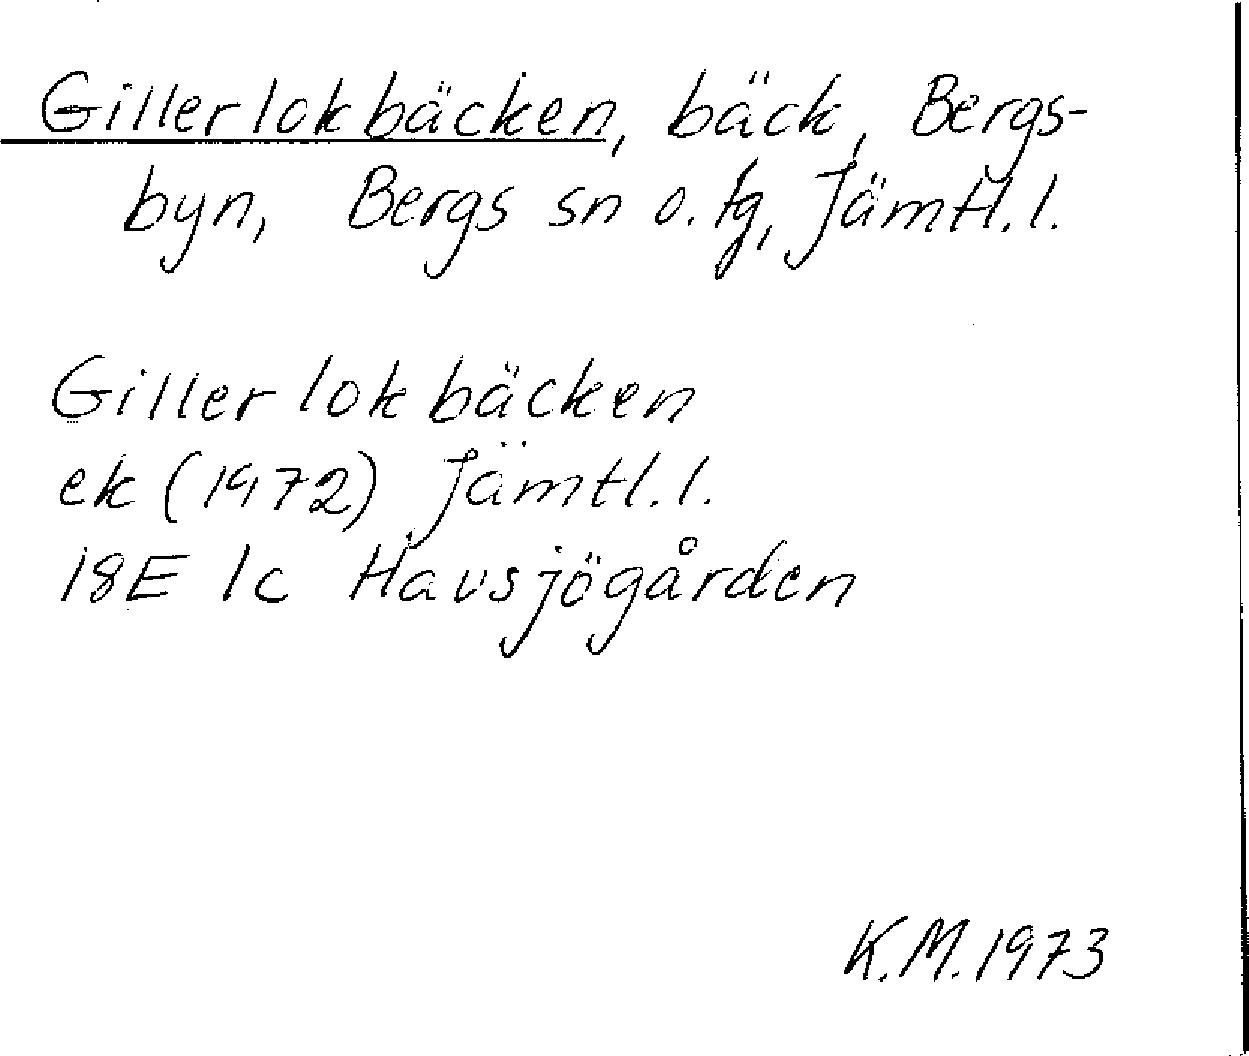 Gillerlokbäcken, bäck, Bergs-
byn, Bergs sn o. tg, Jämtl. l.
Gillerlokbäcken
ek (1972) Jämtl. l.
18E 1c Havsjögården
K.M. 1973